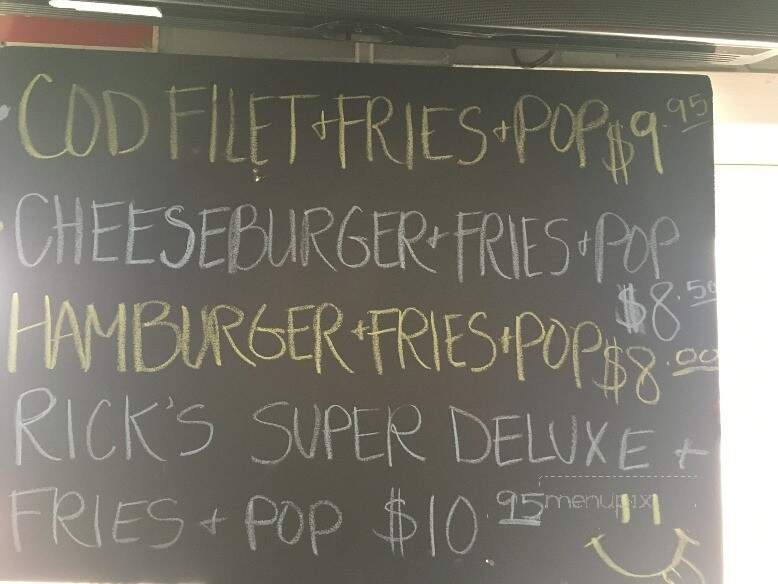 COD FILET + FRIES + POP $9.95
CHEESEBURGER + FRIES + POP
$8.50
HAMBURGER + FRIES + POP $8.00
RICK'S SUPER DELUXE +
FRIES + POP $10.95
menupix